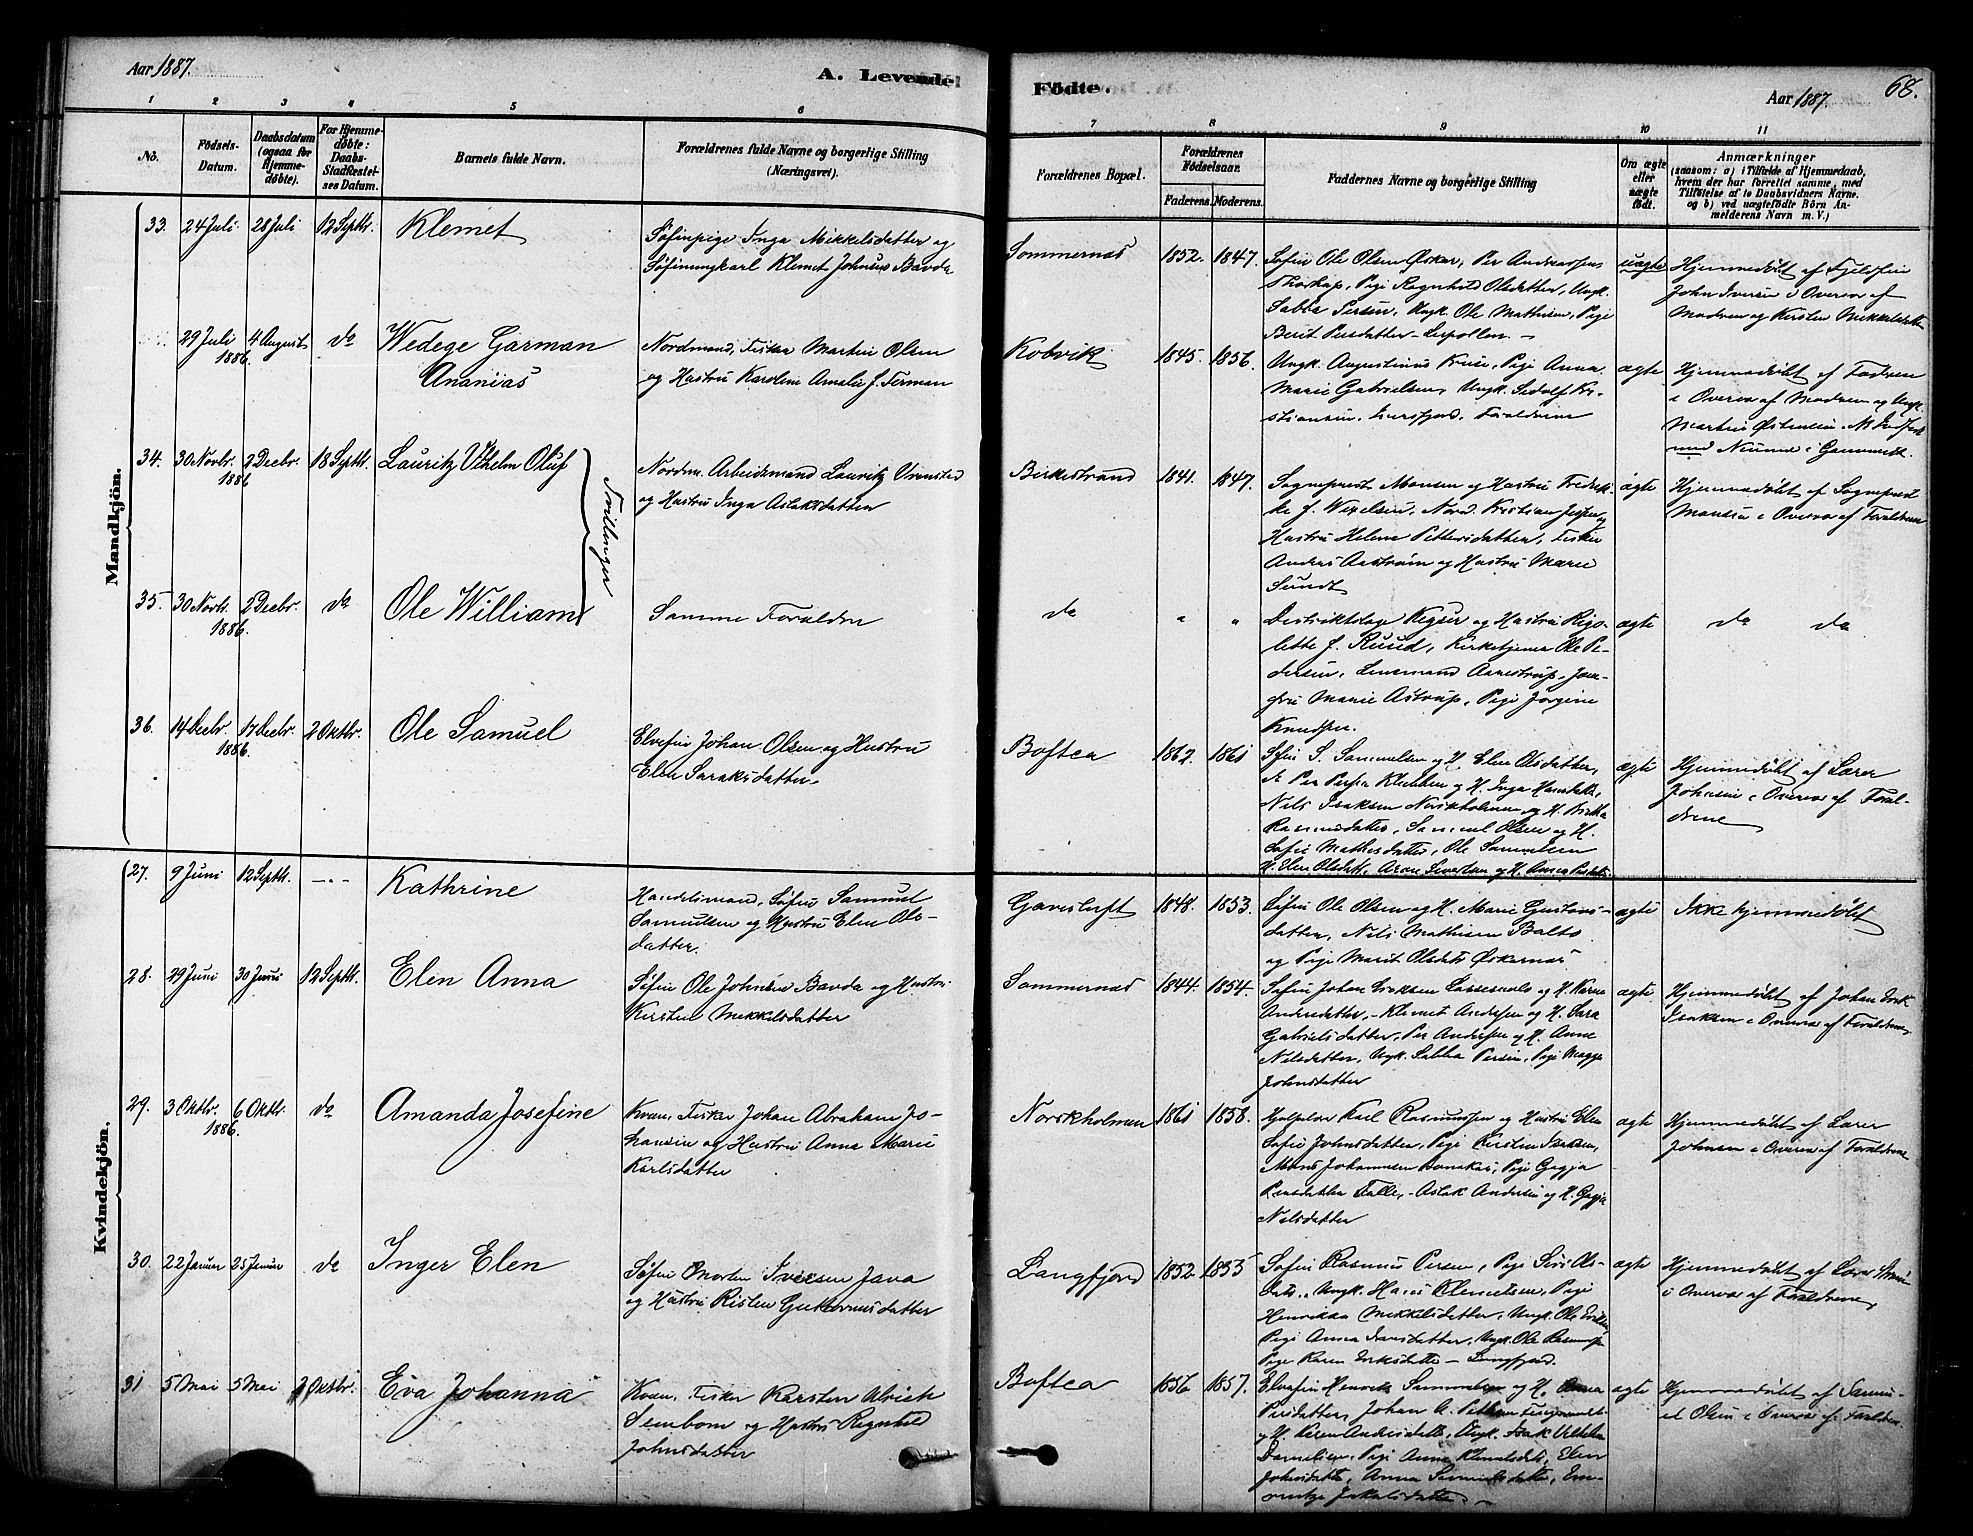 Aar 1887.
A. Levende
Födte.
Aar 1887.
68.
1 2 3 4 5 6
7 8 9 10 11
No.
Födsels-
Datum.
Daabsdatum
(ogsaa for
Hjemme-
döbte).
For Hjemme-
döbte:
Daabs-
Stadfæstel-
ses Datum.
Barnets fulde Navn.
Forældrenes fulde Navne og borgerlige Stilling
(Næringsvei).
Forældrenes Bopæl.
Forældrenes
Födselsaar.
Faderens. Moderens.
Faddernes Navne og borgerlige Stilling
Om ægte
eller
uægte
födt.
Anmærkninger
(saasom: a) i Tilfælde af Hjemmedaab,
hvem der har forrettet samme, med
Tilföielse af to Daabsvidners Navne.
og b) ved uægtefödte Börn An-
melderens Navn m. V.)
Mandkjön.
33. 24 Juli 28 Juli 12 Septbr. Klemet
Söfinpige Inga Mikkelsdatter og
Söfinungkarl Klemet Johnsen Bavda
Sommernæs 1852. 1847.
Søfin Ole Olsen Øskar, Per Andersen
Pige Ragnhild Olsdatter, Ungk.
Sabba Persen, Ungk. Ole Mathisen, Pige
Berit Persdatter
uægte
Hjemmedöbt af Fjeldfin
John Iversen i Overvær af
Modren og Kirsten Mikkelsdatter
29 Juli 1886. 4 August do Wedege Garman
Ananias
Nordmand, Fisker Martin Olsen
og Hustru Karoline Amalie f. Ferman
Kobvik 1845. 1856.
Ungk. Augustinus Kruse, Pige Anna
Marie Gabrielsen, Ungk. Sidolf Kri-
stiansen, Forældrene
ægte
Hjemmedöbt af Fadren
i Overvær af Modren og Ungk.
Martin Østensen
34. 30 Novbr. 1886 2 Decbr. 18 Septbr. Lauritz Vilhelm Oluf
Tvillinger
Nordm. Arbeidsmand Lauritz
og Hustru Inga Aslaksdatter
Birkestrand 1841. 1847.
Sogneprest Mansen og Hustru Fredrik-
ke f. Wexelsen, Nord. Kristian Jesper og
Hustru Helene Pettersdatter, Fisker
Anders Aastrøm og Hustru Marie
Sundt
ægte
Hjemmedöbt af Sogneprest
Mansen i Overvær af Forældrene
35. 30 Novbr. 1886. 2 Decbr. do Ole William
Samme Forældre
do " "
Distriktslæge Keyser og Hustru Rigo-
lette f. Ruud, Kirketjener Ole Pe-
dersen, Lensmand Aarestrup, Jom-
fru Marie Astrup, Pige Jørgine
Knudsen.
ægte
do do
36. 14 Decbr. 1886. 17 Decbr. 2 Oktbr. Ole Samuel
Elvefin Johan Olsen og Hustru
Elen Saraksdatter
Boftea 1862. 1861
Søfin S. Samuelsen og H. Elen Olsdatter,
Nils Isaksen Norskholmen og H. Birtha
Rasmusdatter, Samuel Olsen og H.
Sofie Mathisdatter, Ole Samuelsen
H. Elen Olsdatt.
ægte
Hjemmedöbt af Lærer
Johnsen i Overvær af Foræl-
drene
Kvindekjön.
27. 9 Juni 12 Septbr. -..- Kathrine
Handelsmand, Søfin Samuel
Samuelsen og Hustru Elen Ols-
datter.
Gavesluft 1848. 1853.
Søfin Ole Olsen og H. Marie Gustavs-
datter, Nils Mathisen Balto
og Pige Marit Olsdatt. Øskarnæs
ægte
Ikke hjemmedöbt
28. 29 Juni 30 Juni 12 Septbr. Elen Anna
Søfin Ole Johnsen Bavda og Hustru
Kirsten Mikkelsdatter
Sommernæs 1844. 1854.
Søfin Johan Isaksen og H. Karen
Andersdatter, Klemet Andersen og H. Sara
Gabrielsdatter, Per Andersen og H. Anne
Nilsdatter, Ungk. Sabba Persen, Pige Magga
Johnsdatter
ægte
Hjemmedöbt af Johan Erik
Isaksen i Overvær af Forældrene
29. 3 Oktbr. 1886. 6 Oktbr. do Amanda Josefine
Kvæn, Fisker Johan Abraham Jo-
hansen og Hustru Anna Marie
Karlsdatter
Norskholmen 1861 1858.
Hjelpelær Karl Rasmussen og Hustru Elen
Sofie Johnsdatter, Pige Kirsten Isaksen,
Mons Johannesen, Pige Gagja
Persdatter Falle, Aslak Andersen og H. Gagja
Nilsdatter
ægte
Hjemmedöbt af Lærer
Johnsen i Overvær af Forældrene
30. 22 Januar 25 Januar do Inger Elen
Søfin Morten Iversen Java
og Hustru Risten Guttormsdatter
Langfjord 1852. 1853
Søfin Rasmus Persen, Pige Siri Ols-
datt., Ungk. Hans Klemetsen, Pige
Henrikka Mikkelsdatter, Ungk. Ole Eriksen
Pige Anna Hansdatter, Ungk. Ole Rasmussen
Pige Karen Eriksdatter - Langfjord.
ægte
Hjemmedöbt af Lærer
i Overvær af Forældrene
31 5 Mai 5 Mai 2 Oktbr. Eva Johanna
Kvæn, Fisker Karsten Ulrich
Sembom og Hustru Ragnhild
Johnsdatter
Boftea 1856. 1857.
Elvefin Henrik Samuelsen og H. Anna
Persdatter, Johan A. Pettersen
og H. Karen Andersdatt., Ungk. Isak Vilhelm
Danielsen, Pige Anna Klemetsdatt., Elen
Johnsdatter, Anna Samuelsdatter,
ægte
Hjemmedöbt af Samu-
el Olsen i Overvær af Forældrene